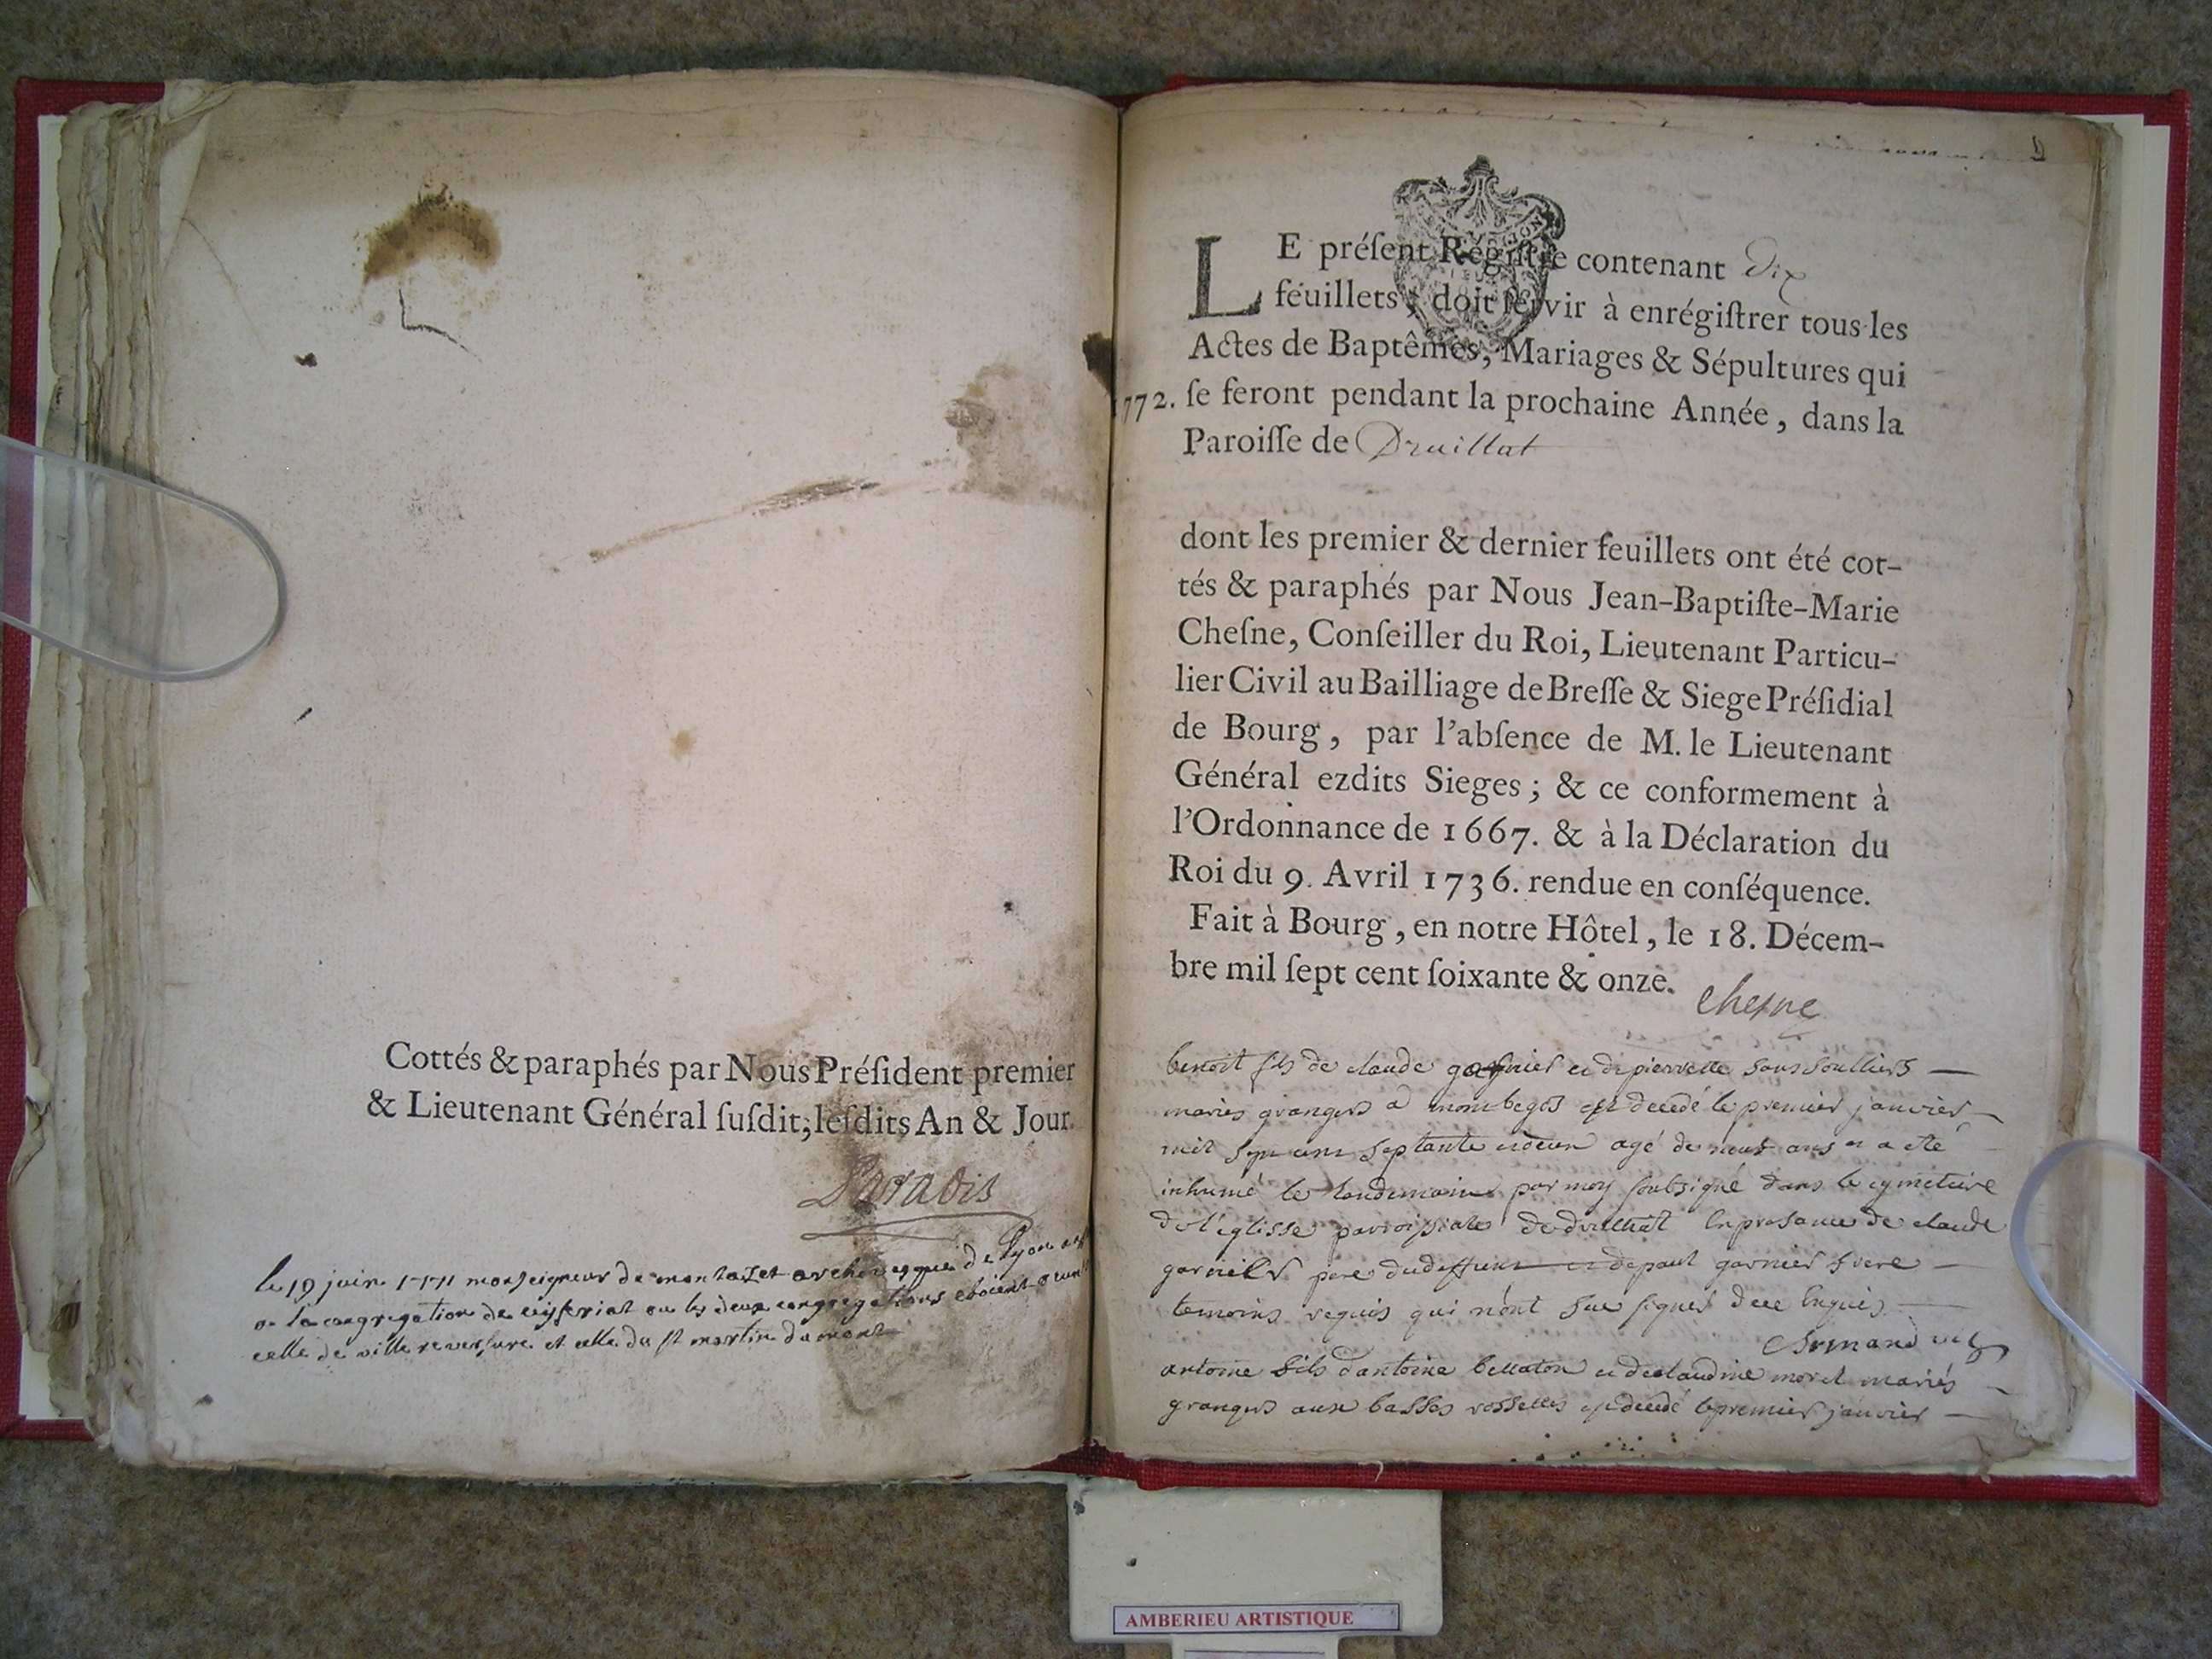 Cottés & paraphés par Nous Préſident premier
& Lieutenant Général ſuſdit; leſdits An & Jour.
Paradis
le 19 juin 1771 monseigneur de montazet archevesque de Lyon
a la congregation de ceyseriat ou les deux congregations etoient
celle de ville reversure et celle du st martin du mont
LE préſent Régiſtre contenant Dix
feuillets, doit ſervir à enrégiſtrer tous les
Actes de Baptêmes, Mariages & Sépultures qui
1772. ſe feront pendant la prochaine Année, dans la
Paroiſſe de Druillat
dont les premier & dernier feuillets ont été cot-
tés & paraphés par Nous Jean-Baptiſte-Marie
Cheſne, Conſeiller du Roi, Lieutenant Particu-
lier Civil au Bailliage de Breſſe & Siege Préſidial
de Bourg, par l'abſence de M. le Lieutenant
Général ezdits Sieges; & ce conformement à
l'Ordonnance de 1667. & à la Déclaration du
Roi du 9. Avril 1736. rendue en conſéquence.
Fait à Bourg, en notre Hôtel, le 18. Décem-
bre mil ſept cent ſoixante & onze.
Chesne
benoit fils de claude garnier et de pierrette sanssoulliers
mariés grangers a monbegos est decedé le premier janvier
mil sept cent septante et deux agé de neuf ans et a eté
inhumé le landemain par moy soubsigné dans le cymetiere
de l'eglisse parroissiale de druillat en presance de claude
garnier pere du deffunt et de paul garnier frere
temoins requis qui n'ont sçu signer de ce enquis
antoine fils d'antoine bellaton et de claudine morel mariés
grangers aux basses rosselles est decedé le premier janvier
AMBERIEU ARTISTIQUE